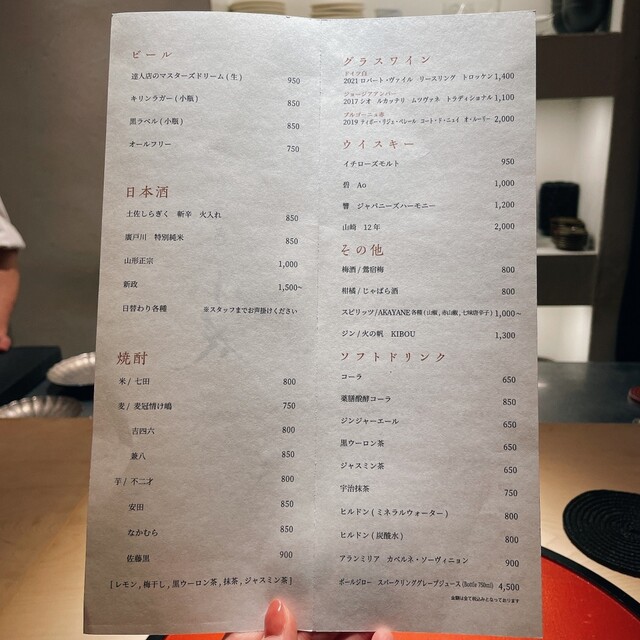 ビール
達人店のマスターズドリーム ( 生 ) 950
キリンラガー ( 小瓶 ) 850
黒ラベル ( 小瓶 ) 850
オールフリー 750
日本酒
土佐しらぎく 斬辛 火入れ 850
廣戸川 特別純米 850
山形正宗 1,000
新政 1,500~
日替わり各種 ※スタッフまでお声掛けください
焼酎
米 / 七田 800
麦 / 麦冠情け嶋 750
吉四六 800
兼八 850
芋 / 不二才 800
安田 850
なかむら 850
佐藤黒 900
[ レモン , 梅干し , 黒ウーロン茶 , 抹茶 , ジャスミン茶 ]
グラスワイン
ドイツ白
2021 ロバート・ヴァイル リースリング トロッケン 1,400
ジョージアアンバー
2017 シオ ルカッテリ ムツヴァネ トラディショナル 1,100
ブルゴーニュ赤
2019 ティボー・リジェ・ベレール コート・ド・ニュイ オ・ルーリー 2,000
ウイスキー
イチローズモルト 950
碧 Ao 1,200
響 ジャパニーズハーモニー 1,200
山崎 12 年 2,000
その他
梅酒 / 鶯宿梅 800
柑橘 / じゃばら酒 800
スピリッツ / AKAYANE 各種 ( 山椒 , 赤山椒 , 七味唐辛子 ) 1,000~
ジン / 火の帆 KIBOU 1,300
ソフトドリンク
コーラ 650
薬膳醗酵コーラ 850
ジンジャーエール 650
黒ウーロン茶 650
ジャスミン茶 650
宇治抹茶 750
ヒルドン ( ミネラルウォーター ) 800
ヒルドン ( 炭酸水 ) 800
アランミリア カベルネ・ソーヴィニョン 900
ポールジロー スパークリンググレープジュース (Bottle 750ml) 4,500
金額は全て税込みとなっております